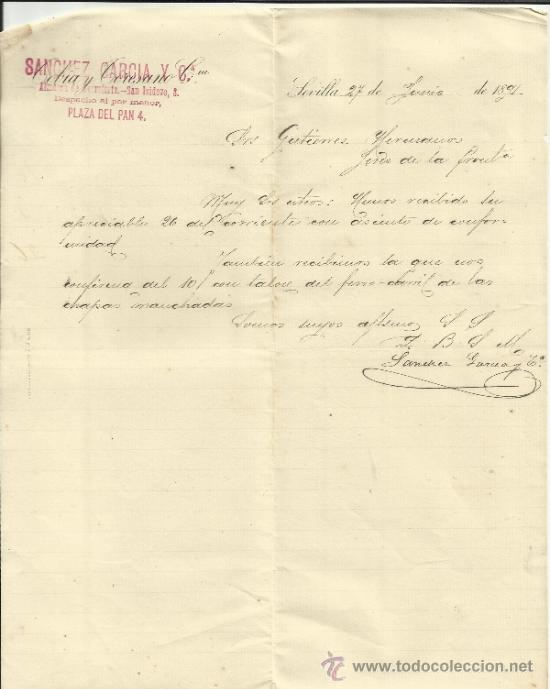 SANCHEZ GARCIA Y Cª
Almacen de Ferretería.—San Isidoro, 8.
Despacho al por menor,
PLAZA DEL PAN 4.
Sevilla 27 de Junio de 189
Srs Gutierrez Hermanos
Jeres de la fronta
Muy Srs ntros: Hemos recibido su
apreciable 26 del corriente con asiento de confor-
midad
Tambien recibimos la que nos
del 10 con talon del ferro-carril de las
chapas manchadas
Somos suyos afmos S S
Q B S M
Sanchez Garcia y Cª
www.todocoleccion.net